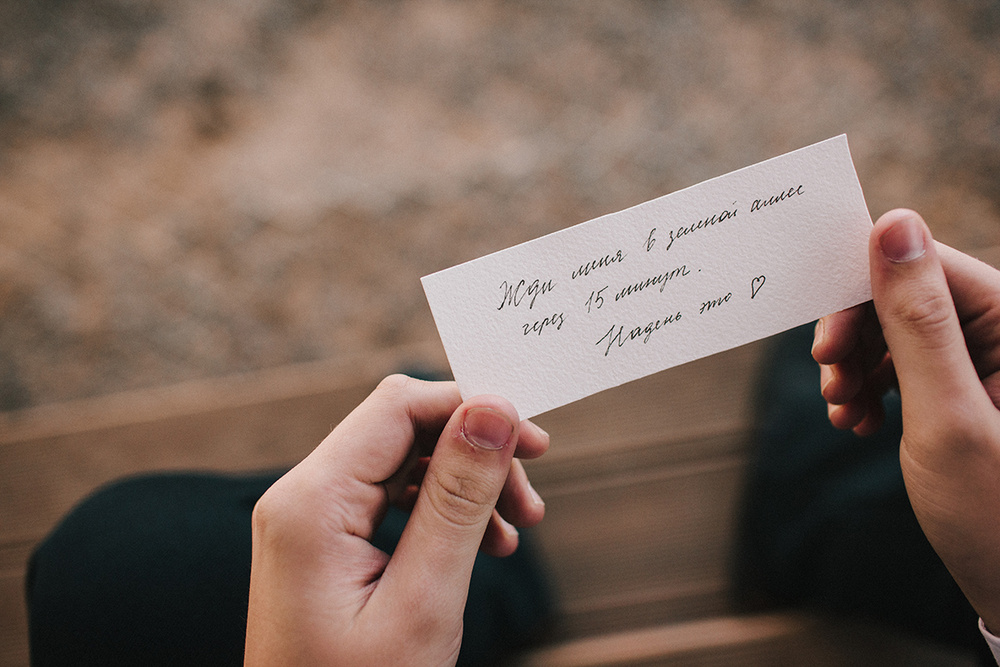 Жди меня в зеленой аллее
через 15 минут.
Надень это ♡